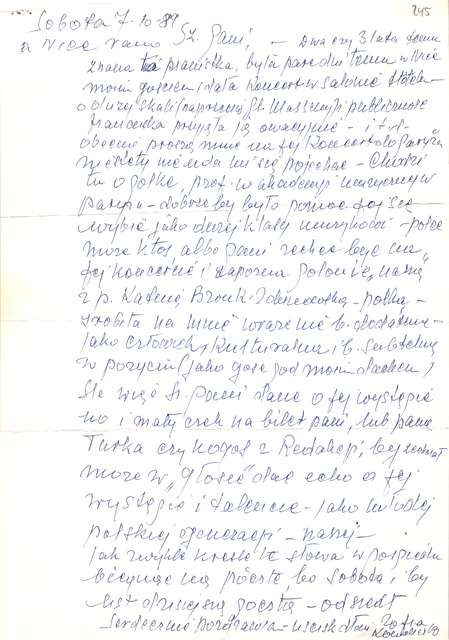 245
Sobota 7-10-89
a Nice rano Sz. Pani, — Dwa czy 3 lata temu
znana pianistka, była parę dni temu w Nice
moim gościem i dała koncert w salonie Hotelu
o dużej skali publiczność
francuska przyjęła ją owacyjnie — i t.d.
obecnie proszą mnie na jej koncert do Paryża
niestety nie uda mi się pojechać — Chodzi
tu o Polkę, prof. w akademii muzycznej w
Paryżu — dobrze by było pomóc jej się
wybić jako dużej klasy muzykowi — polce
może ktoś albo Pani zechce być na
jej koncercie i zapozna Polonię naszą
z p. Brouk-Zdunowską — polką —
zrobiła na mnie wrażenie b. dodatnie —
jako człowiek, kulturalna i b. subtelna
w pożyciu (jako gość pod moim dachem)
Ślę więc Sz. Pani dane o jej występie
no i mały czek na bilet pani, lub pana
Turka czy kogoś z Redakcji, by zechciał
może w „Głosie" dać echo o jej
występie i talencie — jako młodej
polskiej generacji — naszej —
jak zwykle kreślę te słowa w pośpiechu
biegnąc na pocztę, bo sobota i by
list dzisiejszą pocztą — odszedł
Serdecznie pozdrawiam — uścisk dłoni Zofia